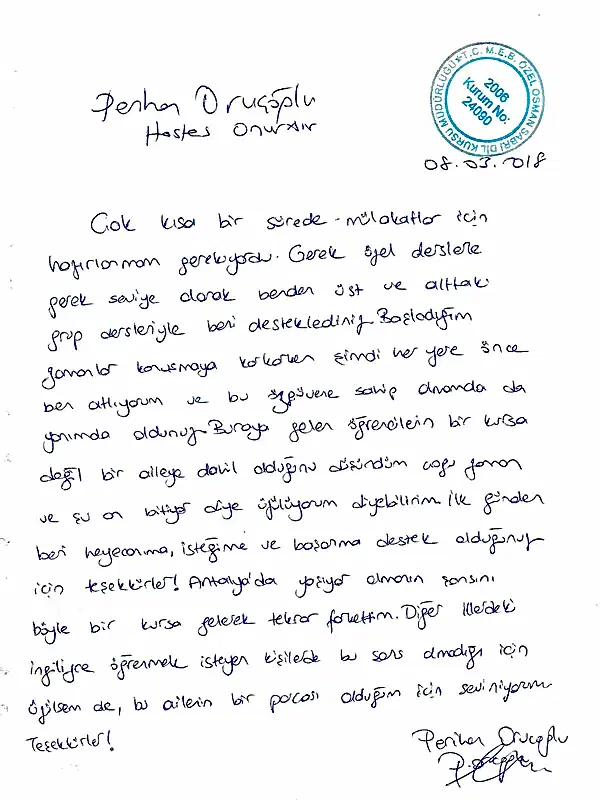 Perihan Oruçoğlu
Hostes OnurAir
T.C. M.E.B. ÖZEL OSMAN SABRİ DİL KURSU MÜDÜRLÜĞÜ
2006
Kurum No:
24090
08.03.018
Çok kısa bir sürede mülakatlar için
hazırlanmam gerekiyordu. Gerek özel derslerle
gerek seviye olarak benden üst ve alttaki
grup dersleriyle beni desteklediniz. Başladığım
zamanlar konuşmaya korkarken şimdi her yere önce
ben atlıyorum ve bu özgüvene sahip olmamda da
yanımda oldunuz. Buraya gelen öğrencilerin bir kursa
değil bir aileye dahil olduğunu düşündüm çoğu zaman
ve şu an bitiyor diye üzülüyorum diyebilirim. İlk günden
beri heyecanıma, isteğime ve başarıma destek olduğunuz
için teşekkürler! Antalya'da yaşıyor olmanın şansını
böyle bir kursa gelerek tekrar farkettim. Diğer illerdeki
ingilizce öğrenmek isteyen kişilerde bu şans olmadığı için
üzülsem de, bu ailenin bir parçası olduğum için seviniyorum
Teşekkürler!
Perihan Oruçoğlu